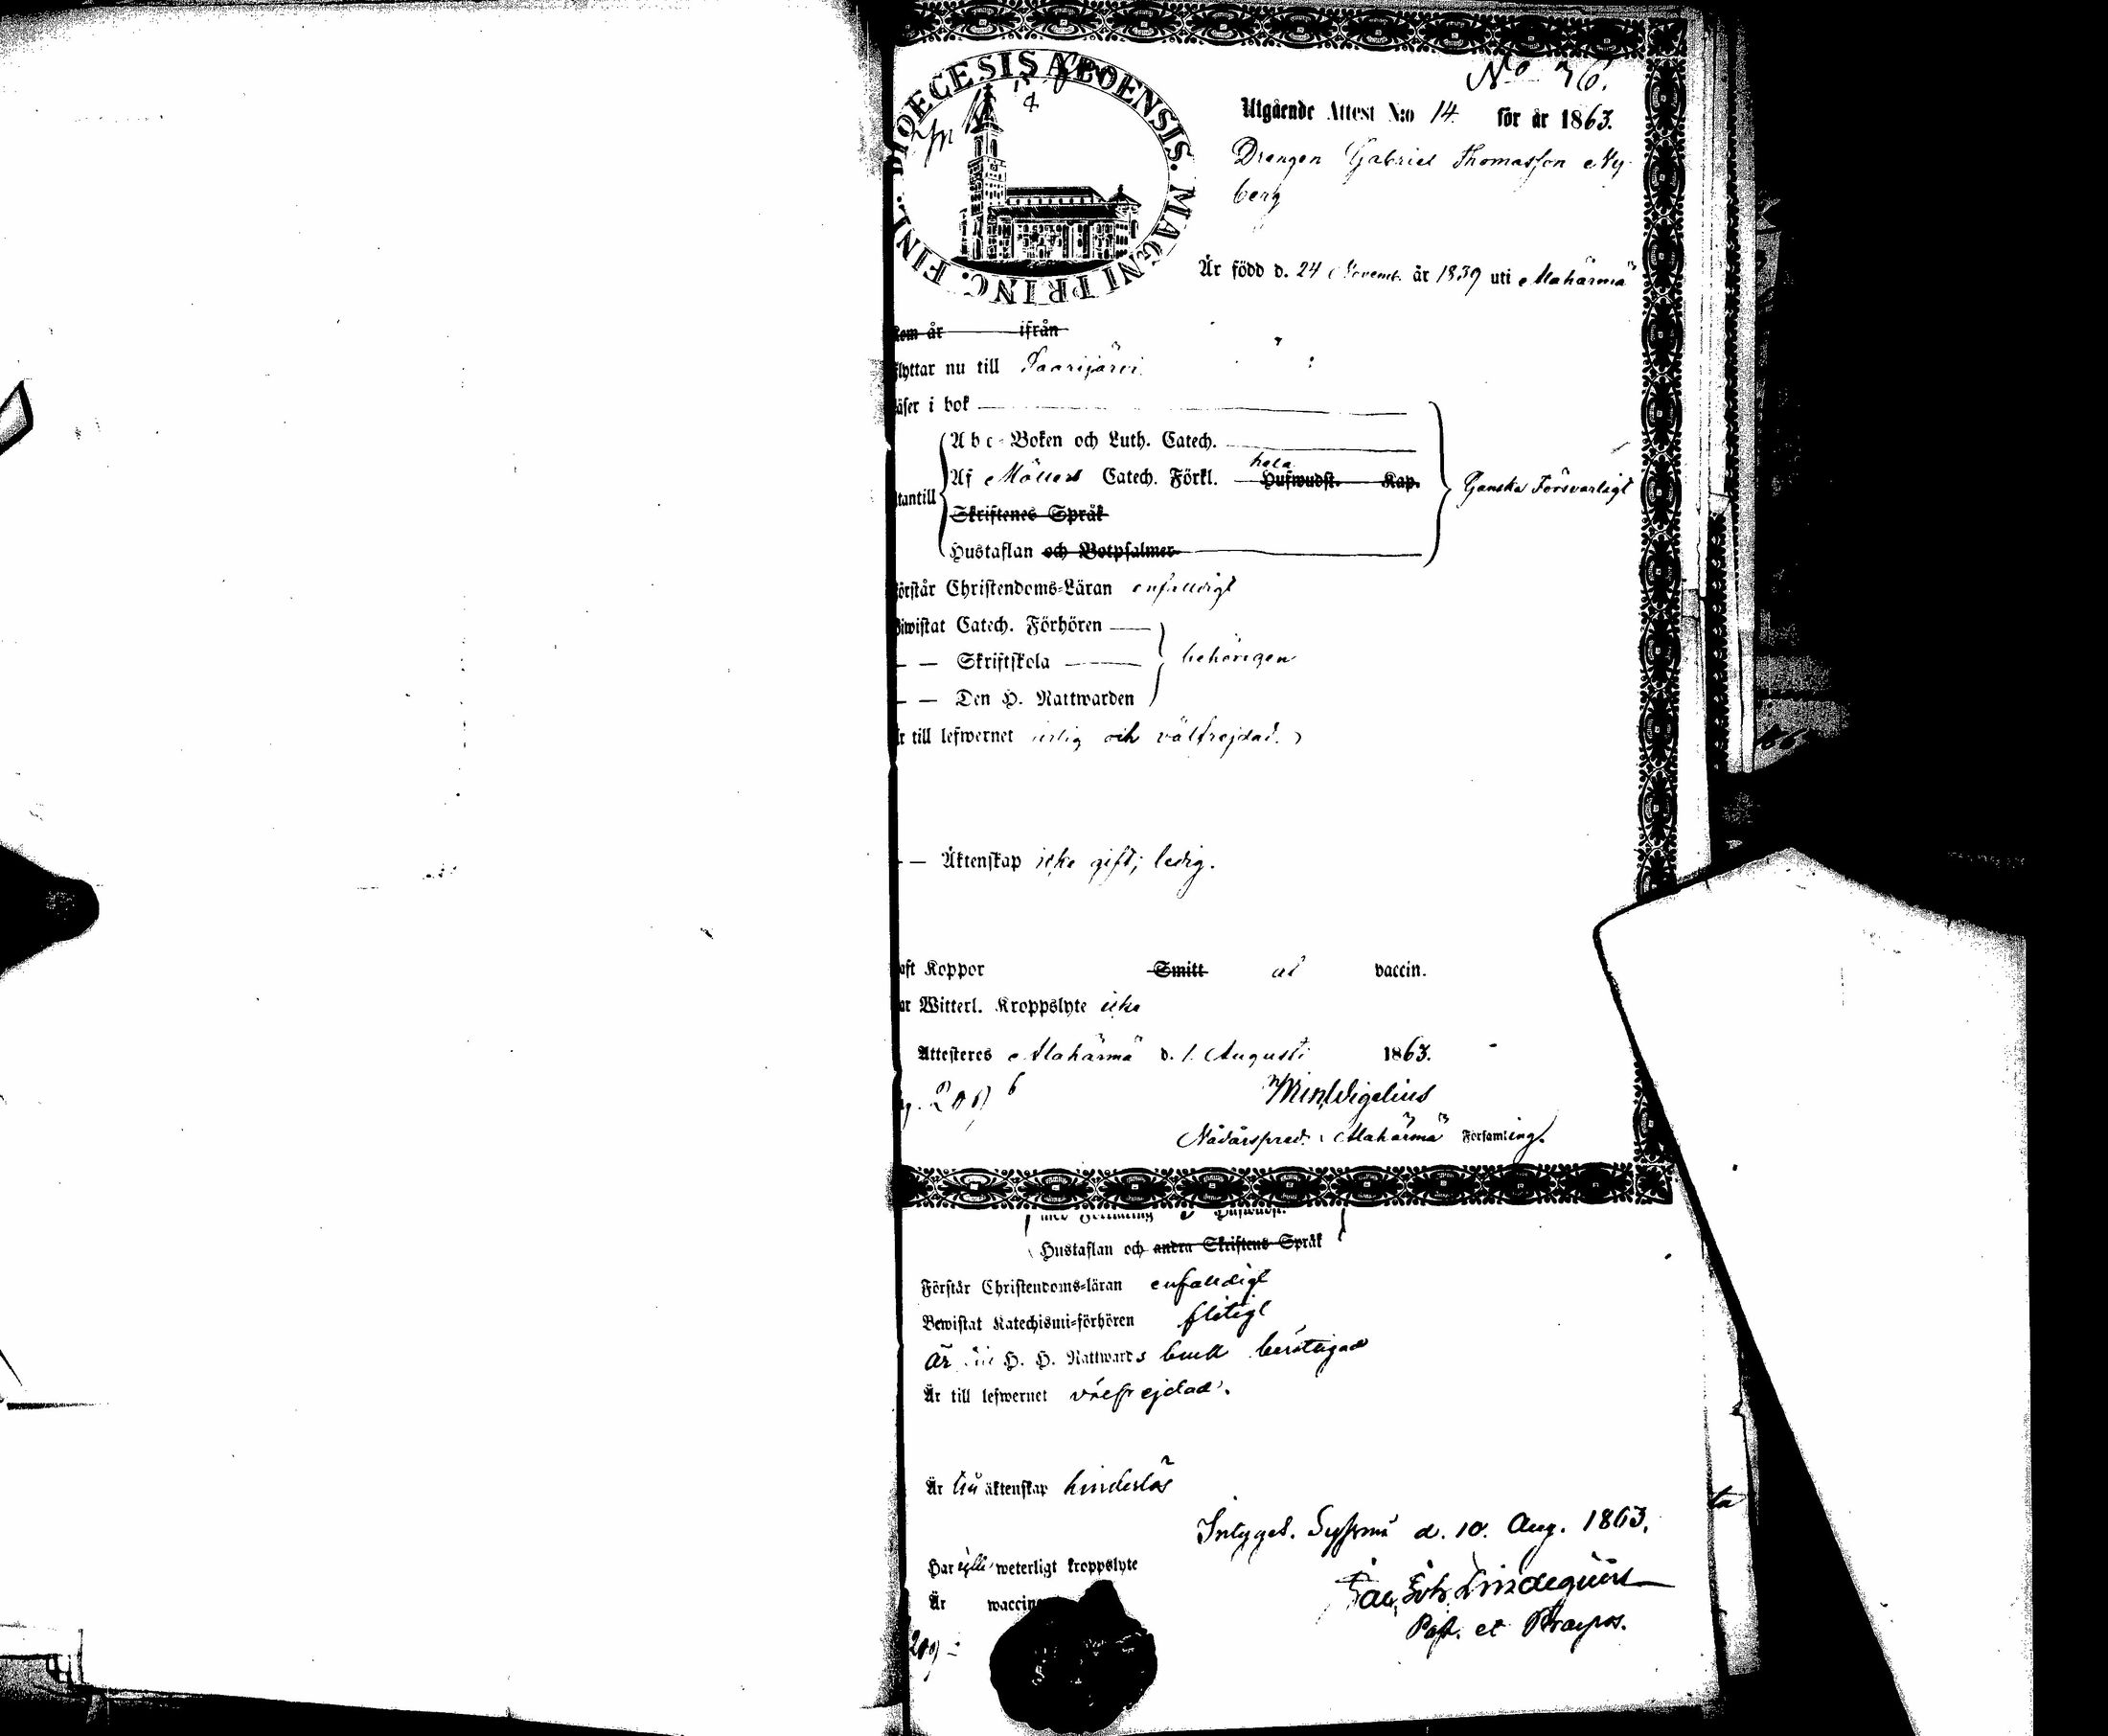 DIOECESIS ABOENSIS. MAGNI PRINC. FINL.
No 76.
Utgående Attest N:o 14. för år 1863.
Drengen Gabriel Thomasson Ny-
berg
Är född d. 24 Novemb. år 1839 uti Alahärmä
Kom år ifrån
flyttar nu till Saarijärvi
äser i bok
Abc-Boken och Luth. Catech.
hela
Af Möllers Catech. Förkl. Hufwudst. Kap.
Ganska Försvarligt
tantill
Skriftenes Språk
Hustaflan och Botpsalmer
örstår Christendoms-Läran enfaldigt
iwistat Catech. Förhören
— — Skriftskola behörigen
— — Den H. Nattwarden
r till lefwernet ärlig och välfrejdad.
— — Äktenskap icke gift; ledig.
aft Koppor Smitt vaccin.
ar Witterl. Kroppslyte icke
Attesteres Alahärmä d. 1. Augusti 1863.
g. 209
Wigelius
Nådårspred. i Alahärmä Församling.
Hustaflan och andra Skriftens Språk
Förstår Christendoms-läran enfaldigt
Bewistat Katechismi-förhören flitigt
är H. H. Nattwards bruk berättigad
Är till lefwernet välfrejdad.
Är till äktenskap hinderlös
Intygat. Sysmä d. 10. Aug. 1863.
Har weterligt kroppslyte
Jac. Joh. Lindequist
Är waccin
Past. et Praepos.
209